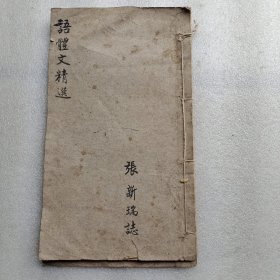 語體文精選
張新瑞誌